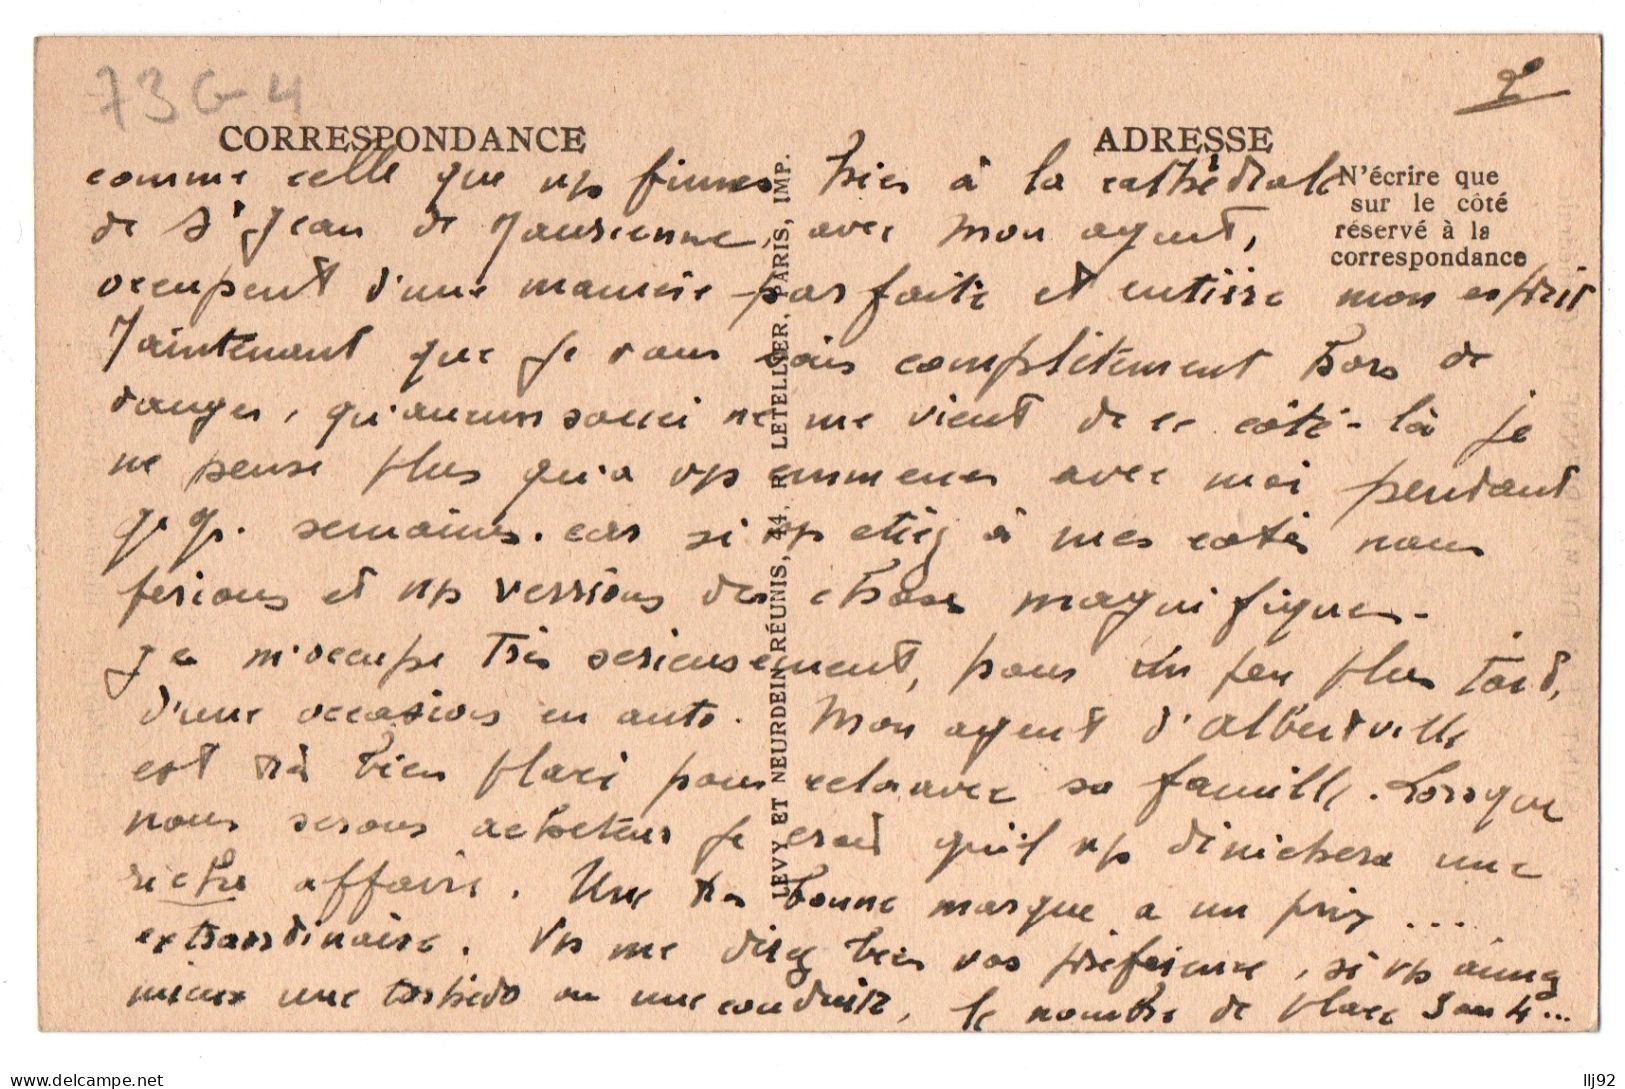 73G-4
2
CORRESPONDANCE
ADRESSE
N'écrire que
sur le côté
réservé à la
correspondance
LEVY ET NEURDEIN RÉUNIS, 44, R. LETELLIER, PARIS, IMP.
comme celle que vs fimes hier à la cathédrale
de St Jean de Maurienne, avec mon agent,
occupent d'une manière parfaite et entière mon esprit
Maintenant que je vous sais complètement hors de
danger, qu'aucun souci ne me vient de ce côté-là je
ne pense plus qu'à vs emmener avec moi pendant
qq. semaines. car si vs etiez à mes cotés nous
ferions et vs verrions des choses magnifiques.
Je m'occupe très serieusement, pour un peu plus tard,
d'une occasion en auto. Mon agent d'Albertville
est très bien placé pour cela avec sa famille. Lorsque
nous serons acheteur je crois qu'il vs dénichera une
riche affaire. Une très bonne marque a un prix ...
extraordinaire. Vs me direz bien vos préférence, si vs aimez
mieux une torpédo ou une conduite, le nombre de place 3 ou 4...
llj92